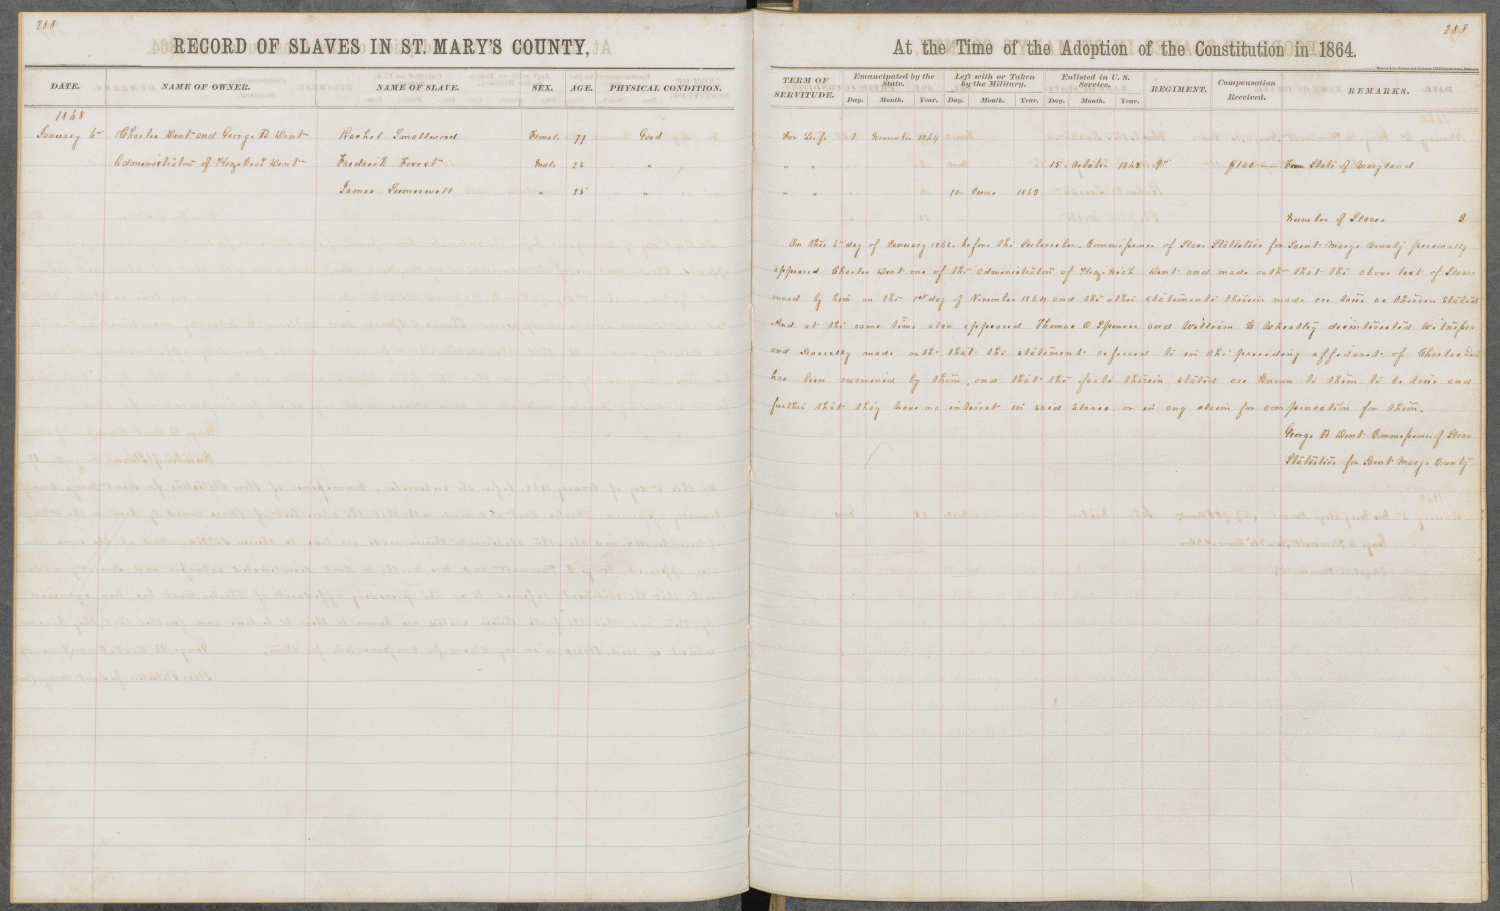 288
RECORD OF SLAVES IN ST. MARY'S COUNTY,
DATE. NAME OF OWNER. NAME OF SLAVE. SEX. AGE. PHYSICAL CONDITION.
1868
January 6th Charles Went and George B Went Rachel Smallwood Female 77 Good
Administrators of Hezekiah Went Fredrick Forest Male 22 "
James " 25 "
288
At the Time of the Adoption of the Constitution in 1864.
TERM OF SERVITUDE. Emancipated by the State. Left with or Taken by the Military. Enlisted in U. S. Service. REGIMENT. Compensation Received. REMARKS.
Day. Month. Year. Day. Month. Year. Day. Month. Year.
For Life 1 November 1864
" " 15 October 1863 9th $100 From State of Maryland
" " 10 June 1863
Number of Slaves 3
On this 6th day of January 1868 before the Subscriber, Commissioner of Slave Statistics for Saint Marys County personally
appeared Charles Went one of the administrators of Hezekiah Went and made oath that the above list of Slaves
owned by him on the 1st day of November 1864 and the other statements therein made are true as therein stated
And at the same time also appeared Thomas C Spencer and William H Wheatley disinterested witnesses
and severally made oath that the statement referred to in the preceding affidavit of Charles Went
has been examined by them, and that the facts therein stated are known to them to be true and
further that they have no interest in said slaves or in any claim for compensation for them.
George B Went Commissioner of Slave
Statistics for Saint Marys County